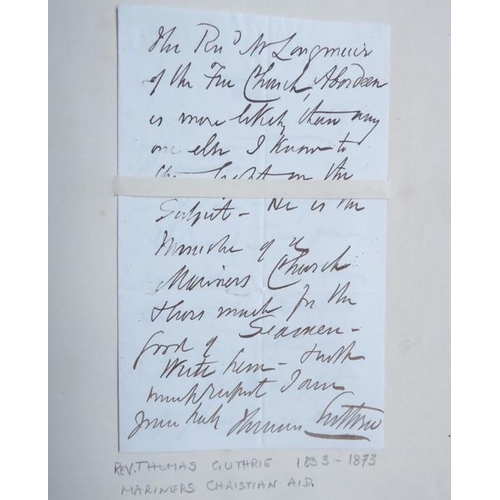 The Revd Mr Longmuir
of the Free Church, Aberdeen
is more likely than any
one else I know to
the
Subject - He is the
Minister of a
Mariners Church
& does much for the
good of Seamen -
Write him - With
much respect I am
yours truly Thomas Guthrie
REV. THOMAS GUTHRIE 1803 - 1873
MARINERS CHRISTIAN AID.